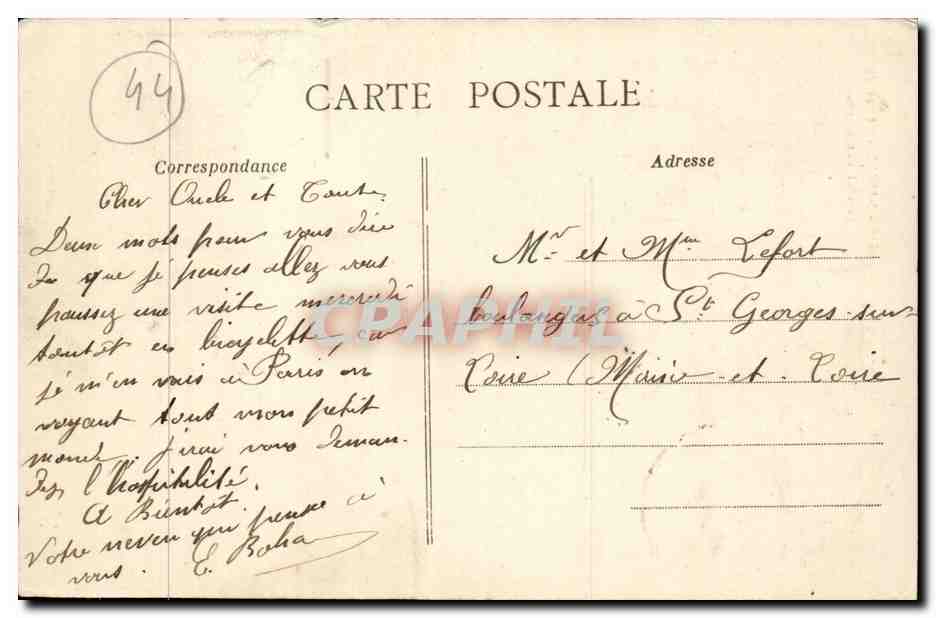 44
CARTE POSTALE
Correspondance
Cher Oncle et Tante,
Deux mots pour vous dire
que je penses allez vous
poussez une visite mercredi
tantôt en bicyclette, car
je m'en vais à Paris en
voyant tout mon petit
monde. J'irai vous deman-
dez l'hospitalité.
A Bientôt.
Votre neveu qui pense à
vous. E.
Adresse
Mr et Mme Lefort
boulangers à St Georges-sur-
Loire (Maine-et-Loire
CPAPHIL